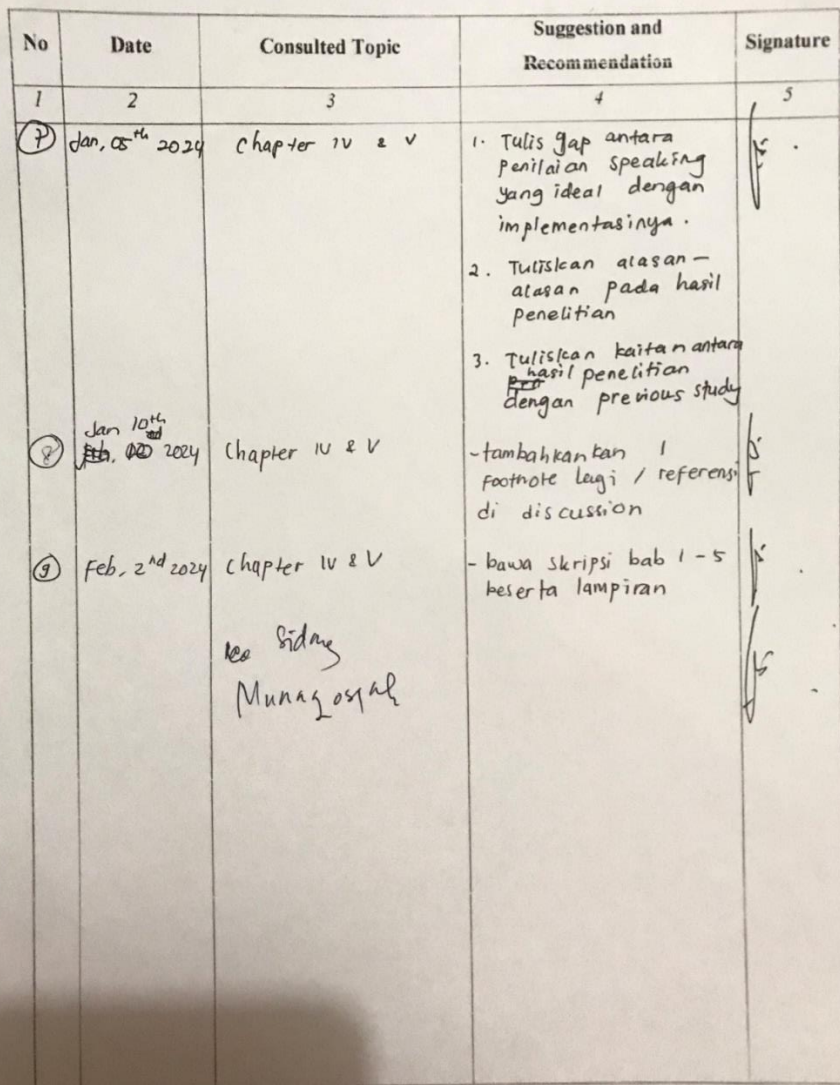 No Date Consulted Topic Suggestion and Recommendation Signature
1 2 3 4 5
7 Jan, 05th 2024 Chapter IV & V 1. Tulis gap antara
penilaian speaking
yang ideal dengan
implementasinya.
2. Tuliskan alasan-
alasan pada hasil
penelitian
3. Tuliskan kaitan antara
hasil penelitian
dengan previous study
Jan 10th
8 2024 Chapter IV & V -tambahkankan 1
footnote lagi / referensi
di discussion
9 Feb, 2nd 2024 Chapter IV & V - bawa skripsi bab 1-5
beserta lampiran
Sidang
Munaqosyah